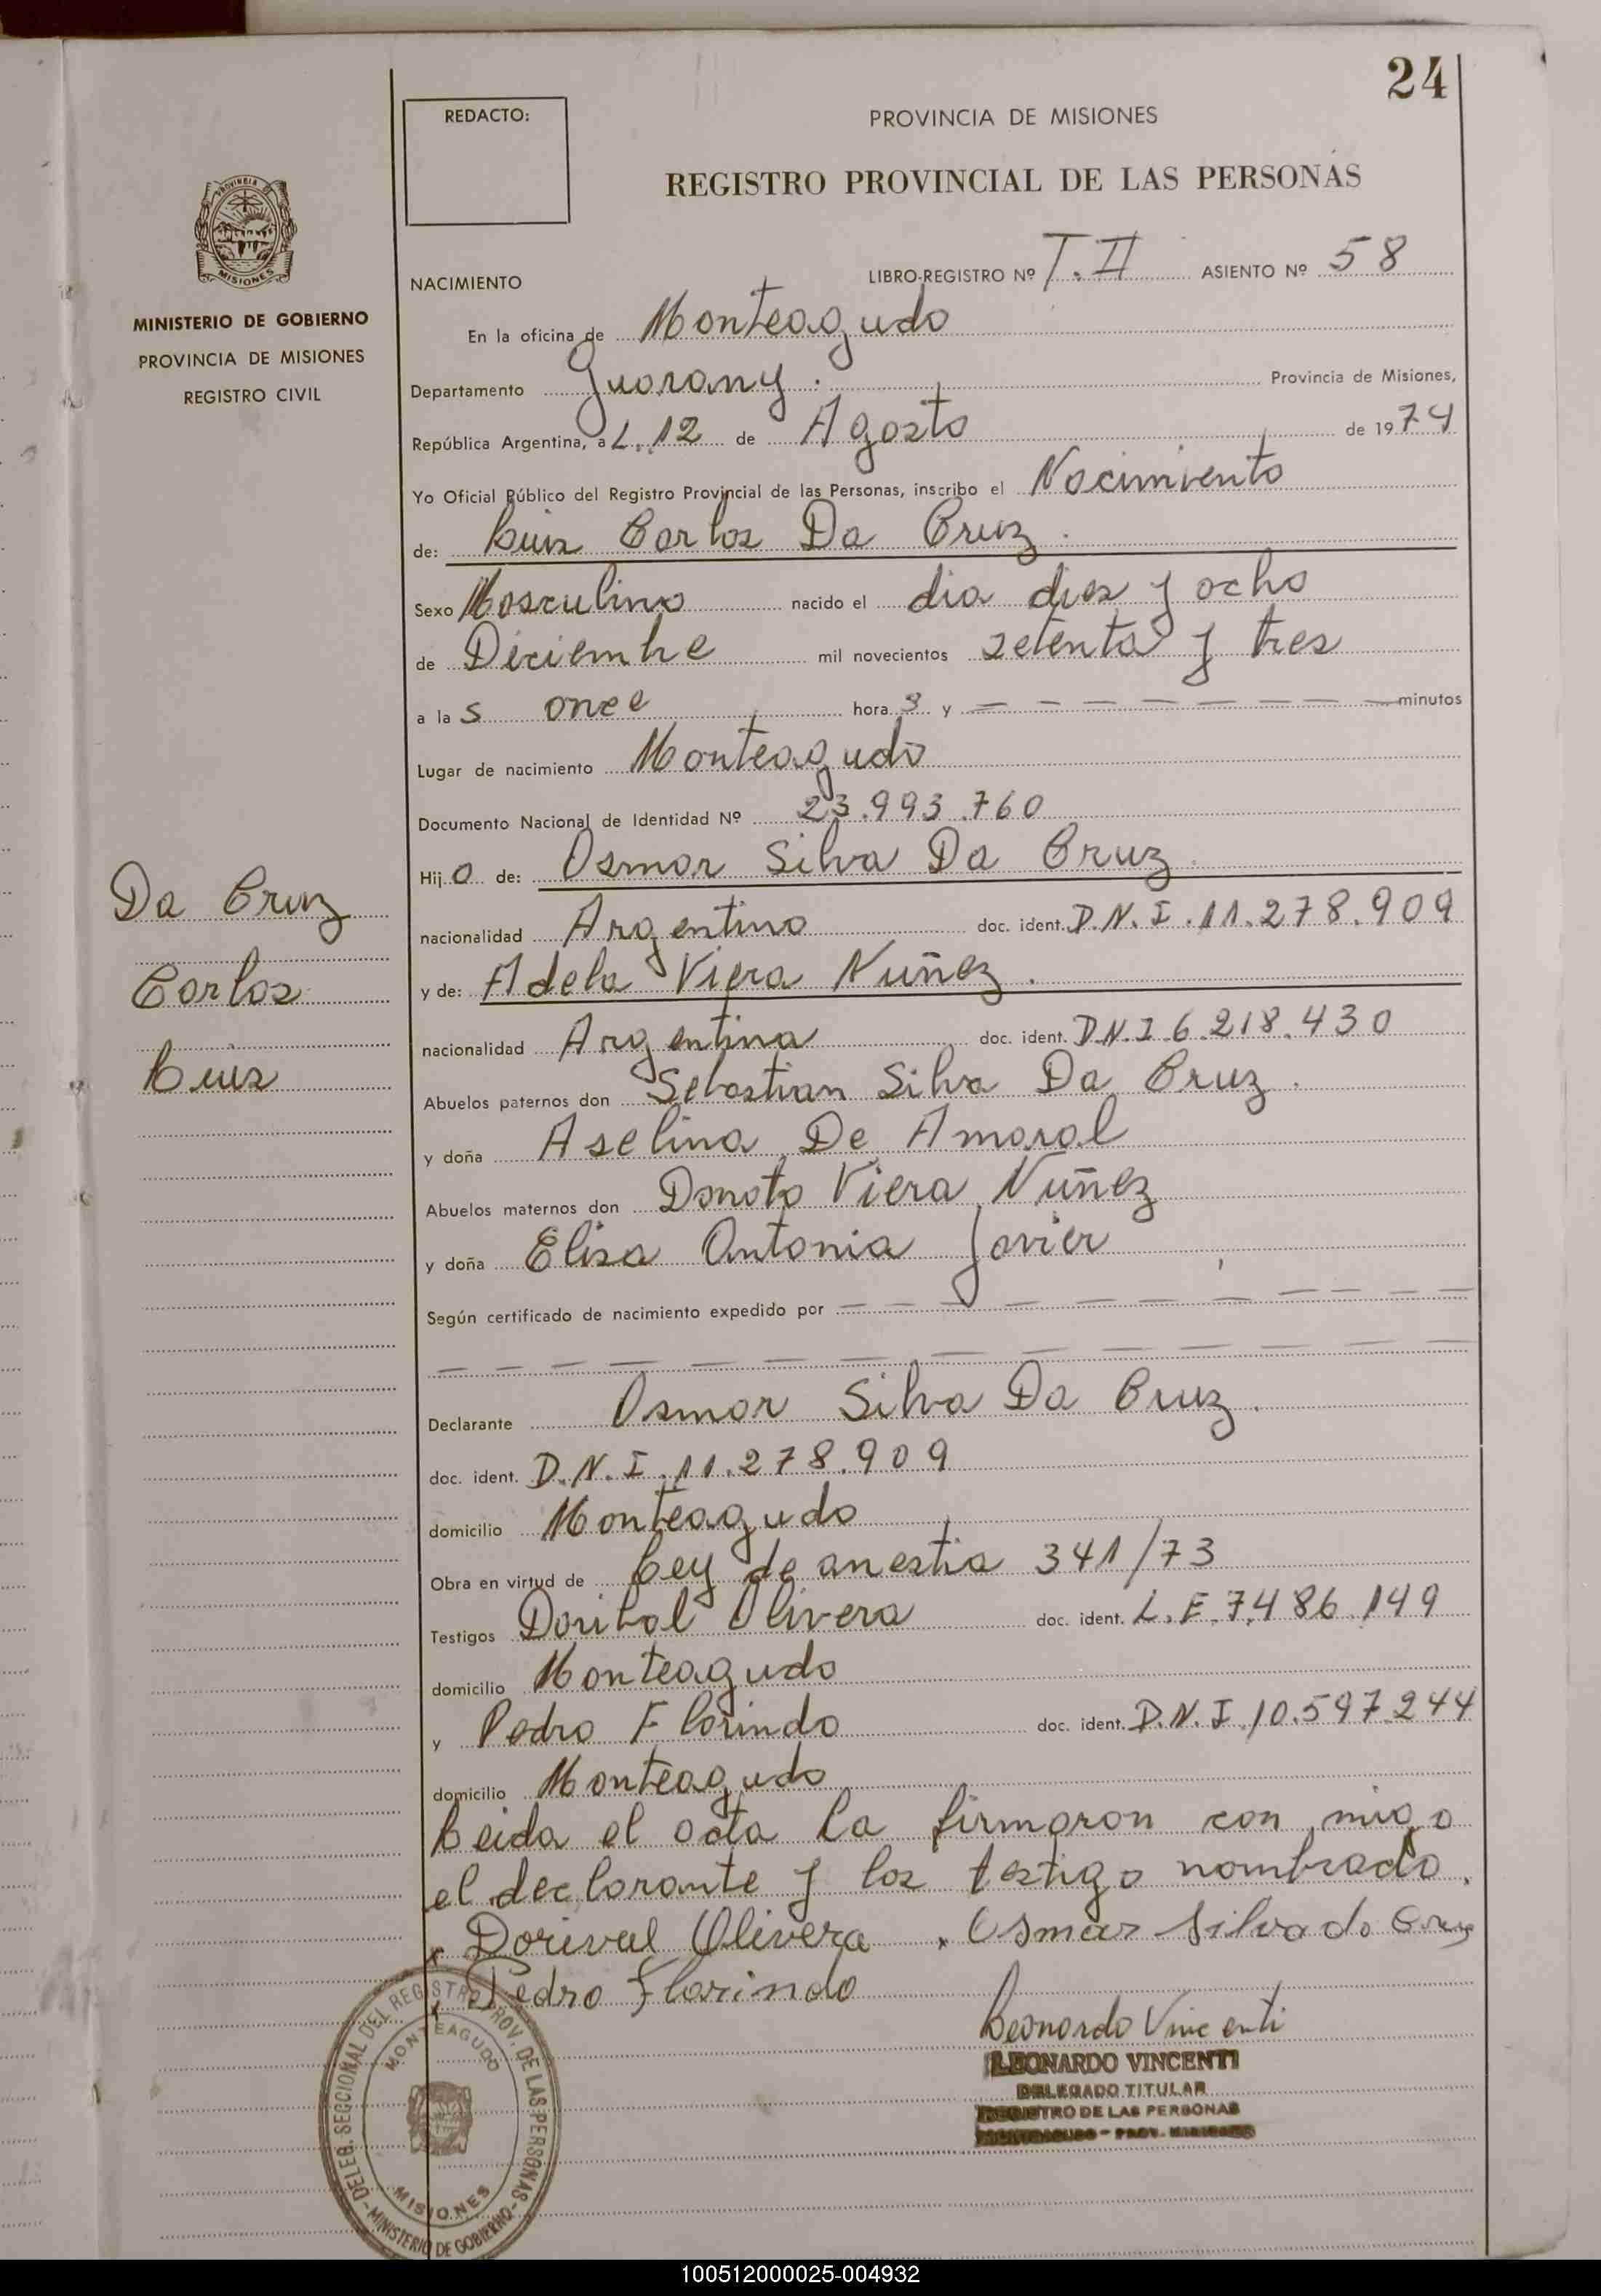 24
REDACTO:
PROVINCIA DE MISIONES
REGISTRO PROVINCIAL DE LAS PERSONAS
PROVINCIA
MISIONES
MINISTERIO DE GOBIERNO
PROVINCIA DE MISIONES
REGISTRO CIVIL
NACIMIENTO LIBRO-REGISTRO Nº T. II ASIENTO Nº 58
En la oficina de Monteagudo
Departamento Guarany. Provincia de Misiones,
República Argentina, a L. 12 de Agosto de 1974
Yo Oficial Público del Registro Provincial de las Personas, inscribo el Nacimiento
de: Luis Carlos Da Cruz.
Sexo Masculino nacido el dia dies y ocho
de Diciembre mil novecientos setenta y tres
a las once horas y — — — — — — — — minutos
Lugar de nacimiento Monteagudo
Documento Nacional de Identidad Nº 23.993.760
Hijo de: Osmar Silva Da Cruz.
nacionalidad Argentino doc. ident. D.N.I. 11.278.909
y de: Adela Viera Nuñez.
nacionalidad Argentina doc. ident. D.N.I 6.218.430
Abuelos paternos don Sebastian Silva Da Cruz.
y doña Aselina De Amaral
Abuelos maternos don Donato Viera Nuñez
y doña Elisa Antonia Javier
Según certificado de nacimiento expedido por — — — — — — — — — — —
— — — — — — — — — — — — — —
Declarante Osmar Silva Da Cruz.
doc. ident. D.N.I. 11.278.909
domicilio Monteagudo
Obra en virtud de Ley de anestia 341/73
Testigos Doribal Olivera doc. ident. L.E. 7.486.149
domicilio Monteagudo
y Pedro Florindo doc. ident. D.N.I. 10.597.244
domicilio Monteagudo
Leida el acta la firmaron con migo
el declarante y los testigo nombrado.
x Dorival Olivera x Osmar Silva da Cruz
x Pedro Florindo
Leonardo Vincenti
LEONARDO VINCENTI
DELEGADO TITULAR
REGISTRO DE LAS PERSONAS
MONTEAGUDO - PROV. MISIONES
Da Cruz
Carlos
Luis
DELEG. SECCIONAL DEL REGISTRO PROV. DE LAS PERSONAS
MONTEAGUDO
MISIONES
- MINISTERIO DE GOBIERNO -
100512000025-004932